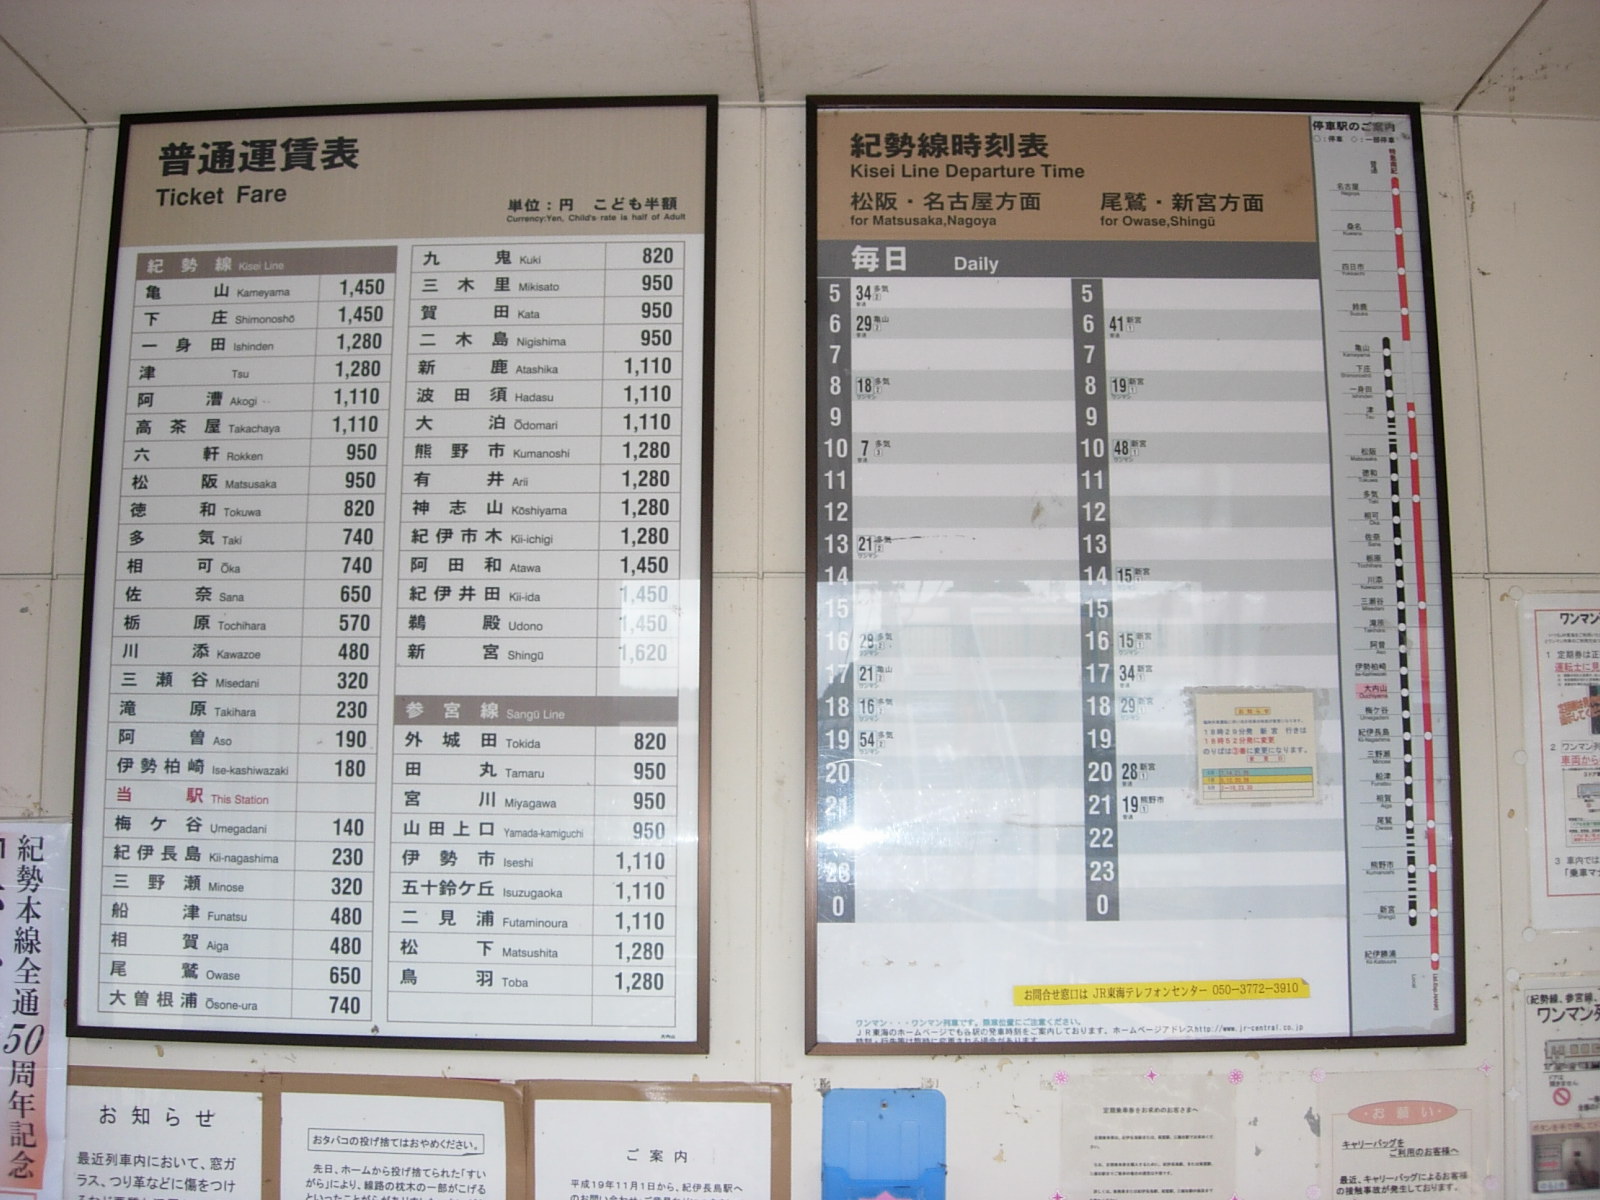 普通運賃表
Ticket Fare
単位：円　こども半額
Currency:Yen, Child's rate is half of Adult
紀勢線 Kisei Line
亀山 Kameyama 1,450
下庄 Shimonoshō 1,450
一身田 Ishinden 1,280
津 Tsu 1,280
阿漕 Akogi 1,110
高茶屋 Takachaya 1,110
六軒 Rokken 950
松阪 Matsusaka 950
徳和 Tokuwa 820
多気 Taki 740
相可 Ōka 740
佐奈 Sana 650
栃原 Tochihara 570
川添 Kawazoe 480
三瀬谷 Misedani 320
滝原 Takihara 230
阿曽 Aso 190
伊勢柏崎 Ise-kashiwazaki 180
当駅 This Station
梅ケ谷 Umegadani 140
紀伊長島 Kii-nagashima 230
三野瀬 Minose 320
船津 Funatsu 480
相賀 Aiga 480
尾鷲 Owase 650
大曽根浦 Ōsone-ura 740
九鬼 Kuki 820
三木里 Mikisato 950
賀田 Kata 950
二木島 Nigishima 950
新鹿 Atashika 1,110
波田須 Hadasu 1,110
大泊 Ōdomari 1,110
熊野市 Kumanoshi 1,280
有井 Arii 1,280
神志山 Kōshiyama 1,280
紀伊市木 Kii-ichigi 1,280
阿田和 Atawa 1,450
紀伊井田 Kii-ida 1,450
鵜殿 Udono 1,450
新宮 Shingū 1,620
参宮線 Sangū Line
外城田 Tokida 820
田丸 Tamaru 950
宮川 Miyagawa 950
山田上口 Yamada-kamiguchi 950
伊勢市 Iseshi 1,110
五十鈴ケ丘 Isuzugaoka 1,110
二見浦 Futaminoura 1,110
松下 Matsushita 1,280
鳥羽 Toba 1,280
紀勢線時刻表
Kisei Line Departure Time
松阪・名古屋方面
for Matsusaka,Nagoya
尾鷲・新宮方面
for Owase,Shingū
毎日 Daily
5 34 多気 5
6 29 亀山 6 41 新宮
7 7
8 18 多気 8 19 新宮
9 9
10 7 多気 10 48 新宮
11 11
12 12
13 21 多気 13
14 14 15 新宮
15 15
16 29 多気 16 15 新宮
17 21 亀山 17 34 新宮
18 16 多気 18 29 新宮
19 54 多気 19
20 20 28 新宮
21 21 19 熊野市
22
23 23
0 0
お知らせ
18時29分発 新宮 行きは
18時52分発に変更
のりばは③番に変更になります。
お問合せ窓口は JR東海テレフォンセンター 050-3772-3910
ワンマン・・・ワンマン列車です。乗車位置にご注意ください。
JR東海のホームページでも各駅の発車時刻をご案内しております。ホームページアドレスhttp://www.jr-central.co.jp
停車駅のご案内
名古屋
桑名
四日市
鈴鹿
亀山
下庄
一身田
津
松阪
徳和
多気
相可
佐奈
栃原
川添
三瀬谷
滝原
阿曽
伊勢柏崎
大内山
梅ケ谷
紀伊長島
三野瀬
船津
相賀
尾鷲
熊野市
新宮
紀伊勝浦
紀勢本線全通50周年記念
お知らせ
最近列車内において、窓ガ
ラス、つり革などに傷をつけ
おタバコの投げ捨てはおやめください。
先日、ホームから投げ捨てられた「すい
がら」により、線路の枕木の一部がこげる
ご案内
平成19年11月1日から、紀伊長島駅へ
定期乗車券をお求めのお客さまへ
お願い
キャリーバッグを
ご利用のお客様へ
最近、キャリーバッグによるお客様
の接触事故が発生しております。
ワンマン
1 定期券は正
運転士に見
2 ワンマン列
車両から
3 車内では
「乗車マナ
(紀勢線、参宮線、
ワンマン列